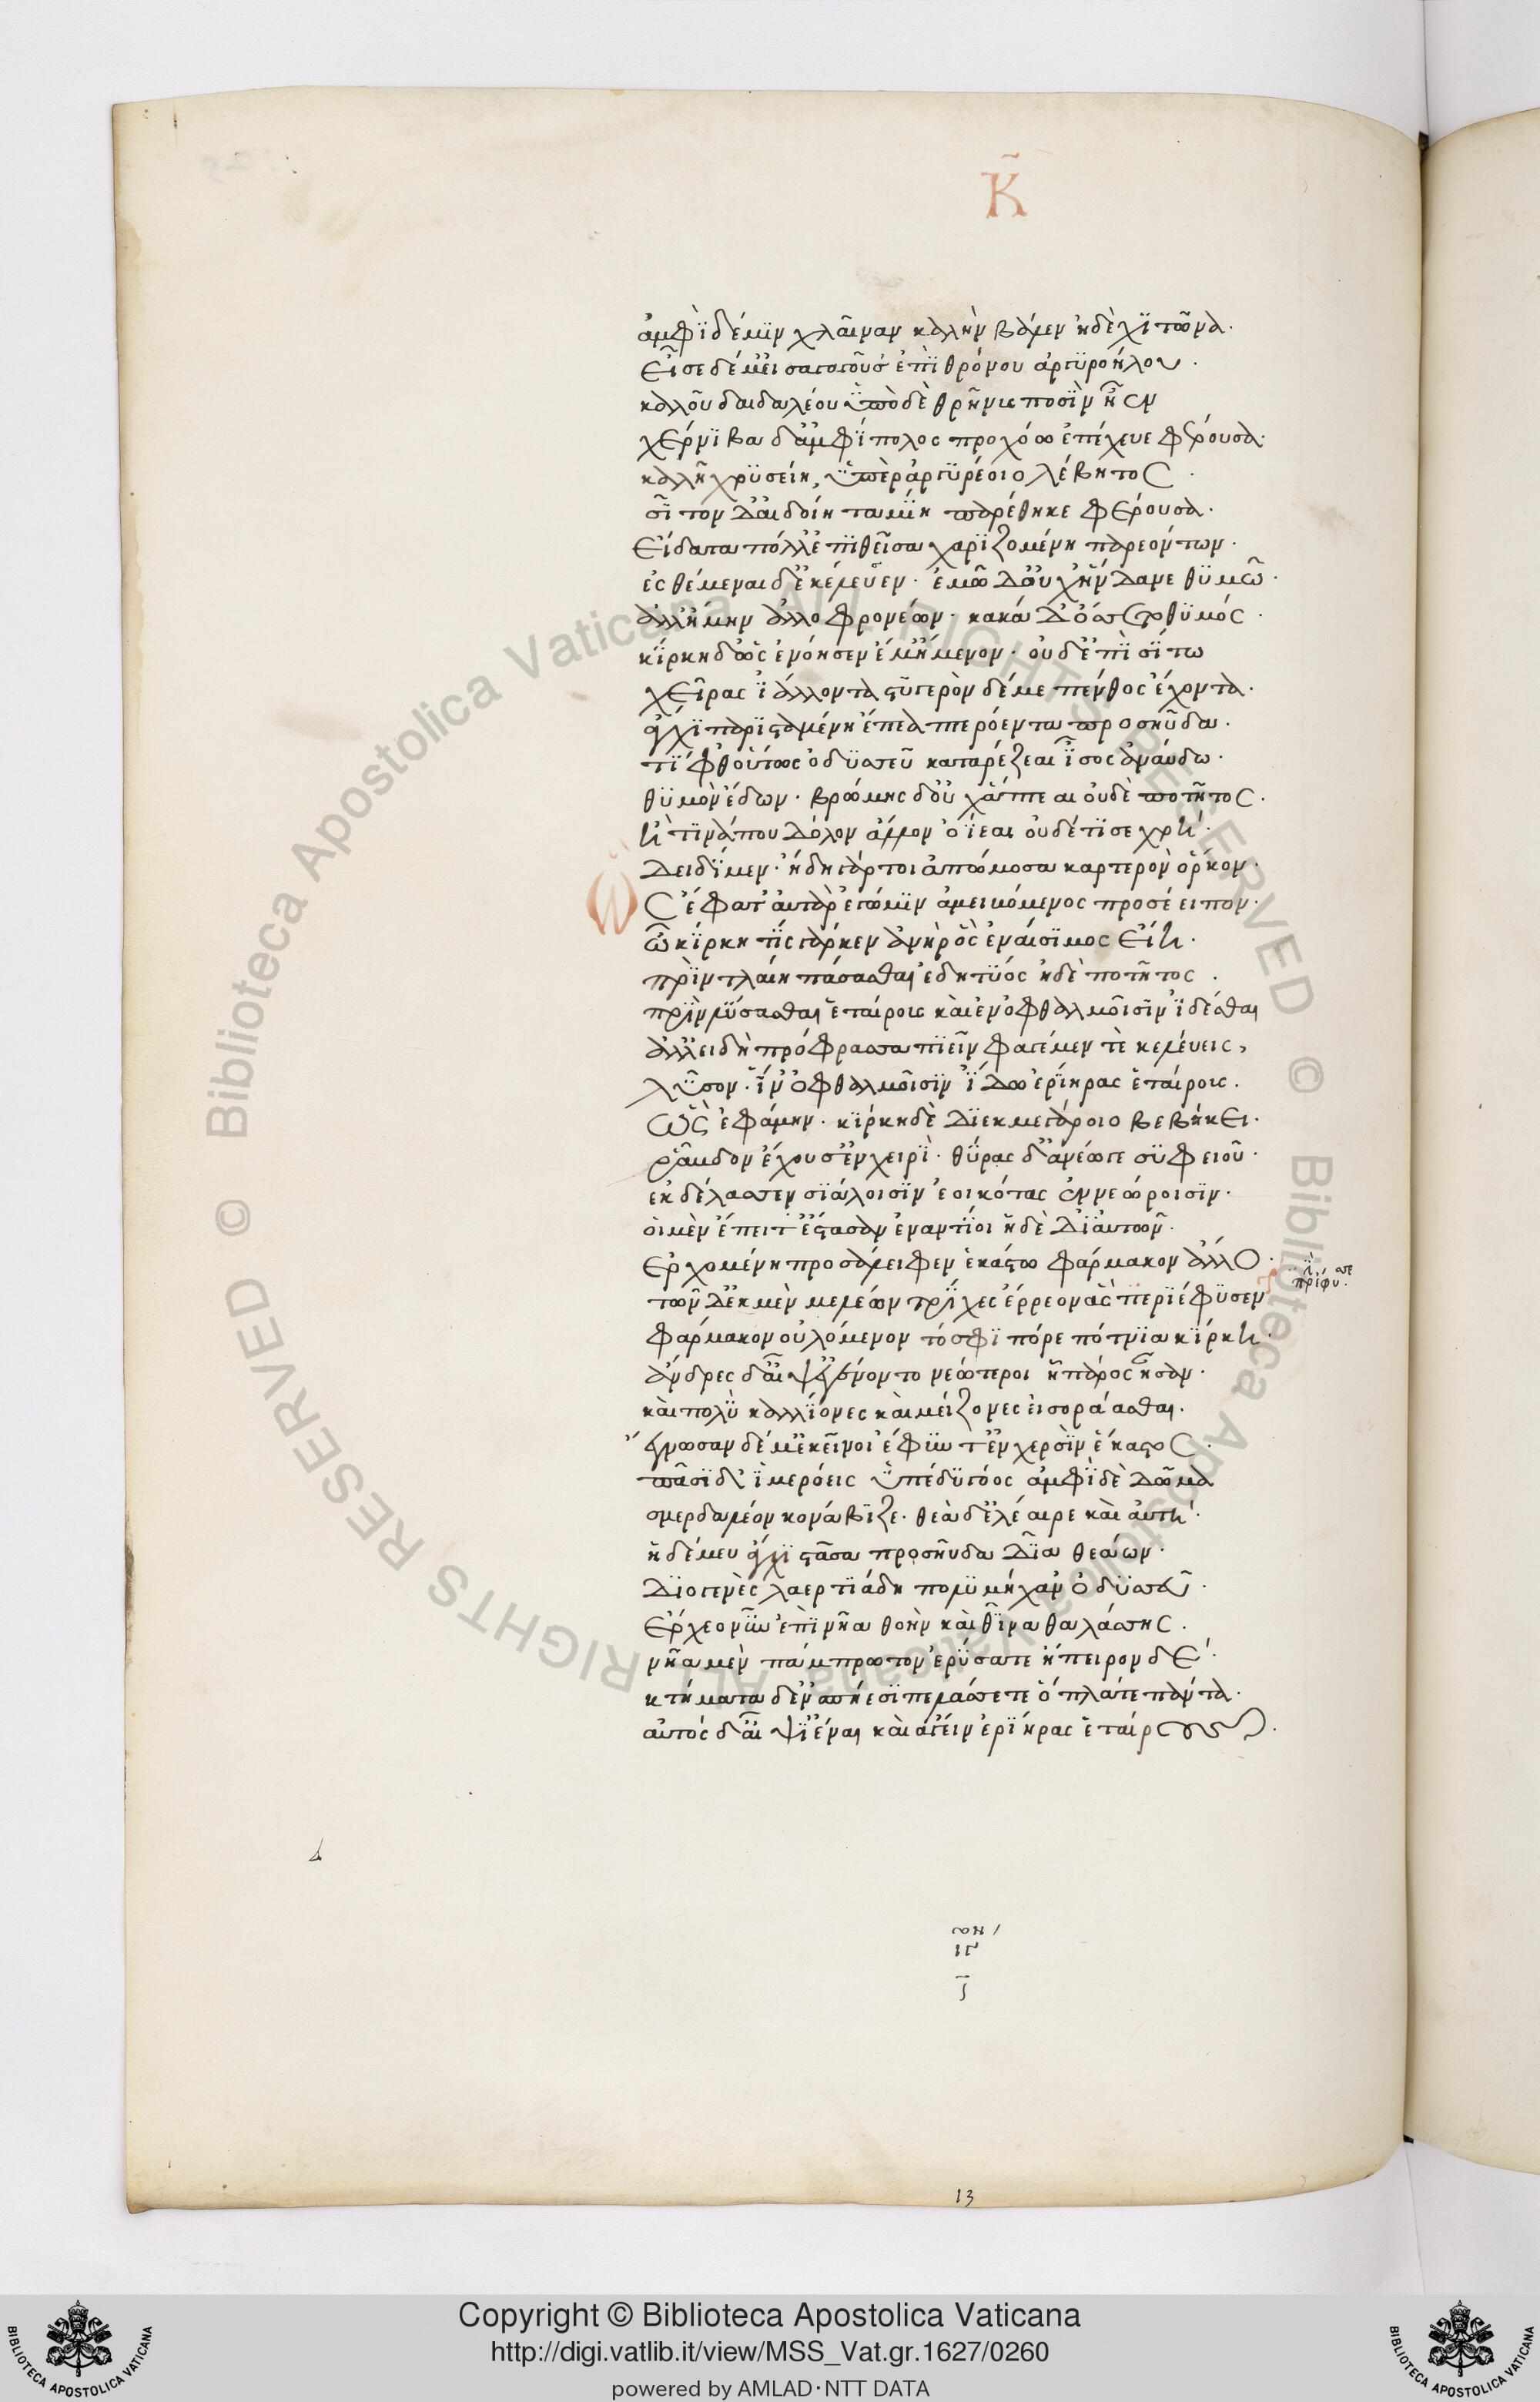 Κ̄
ἀμφὶ δέ μιν χλαῖναν καλὴν βάλεν ἠδὲ χιτῶνα·
εἷσε δέ μ' εἰσαγαγοῦσ' ἐπὶ θρόνου ἀργυροήλου·
καλοῦ δαιδαλέου ὑπὸ δὲ θρῆνυς ποσὶν ἦεν
χέρνιβα δ' ἀμφίπολος προχόω ἐπέχευε φέρουσα·
καλῇ χρυσείη, ὑπὲρ ἀργυρέοιο λέβητος·
σῖτον δ' αἰδοίη ταμίη παρέθηκε φέρουσα·
εἴδατα πόλλ' ἐπιθεῖσα χαριζομένη παρεόντων·
ἐσθέμεναι δ' ἐκέλευεν· ἐμῶ δ' οὐχ ἥνδανε θυμῶ·
ἀλλ' ἥμην ἀλλοφρονέων· κακὰ δ' ὄσσετο θυμός·
κίρκη δ' ὡς ἐνόησεν ἔμ' ἥμενον· οὐδ' ἐπὶ σίτω
χεῖρας ἰάλλοντα στυγερὸν δέ με πένθος ἔχοντα·
ἄγχι παρισταμένη ἔπεα πτερόεντα προσηύδα·
τίφθ' οὕτως ὀδυσσεῦ κατ' ἀρέζεαι ἶσος ἀναύδω·
θυμὸν ἔδων· βρώμης δ' οὐχ ἅπτεαι οὐδὲ ποτῆτος·
ἦ τινά που δόλον ἄλλον ὀΐεαι οὐδέ τί σε χρή·
δειδίμεν· ἤδη γάρ τοι ἀπώμοσα καρτερὸν ὅρκον·
Ὣς ἔφατ' αὐτὰρ ἐγώ μιν ἀμειβόμενος προσέειπον·
ὦ κίρκη τίς γάρ κεν ἀνὴρ ὃς ἐναίσιμος εἴη·
πρὶν τλαίη πάσασθαι ἐδητύος ἠδὲ ποτῆτος·
πρὶν λύσασθαι ἑτάρους καὶ ἐν ὀφθαλμοῖσιν ἰδέσθαι
ἀλλ' εἰ δὴ πρόφρασσα πιεῖν φαγέμεν τὲ κελεύεις,
λῦσον· ἵν' ὀφθαλμοῖσιν ἴδω ἐρίηρας ἑταίρους·
ὣς ἐφάμην· κίρκη δὲ διὲκ μεγάροιο βεβήκει·
ῥάβδον ἔχουσ' ἐν χειρὶ· θύρας δ' ἀνέωγε συφειοῦ·
ἐκ δ' ἔλασσεν σιάλοισιν ἐοικότας ἐννεώροισιν·
οἱ μὲν ἔπειτ' ἔστασαν ἐναντίοι ἡ δὲ δι' αὐτῶν·
ἐρχομένη προσάλειφεν ἑκάστω φάρμακον ἄλλο·
τῶν δ' ἐκ μὲν μελέων τρίχες ἔρρεον ἃς περὶ ἔφυσεν
πρὶν ἔφυσε·
φάρμακον οὐλόμενον τό σφι πόρε πότνια κίρκη·
ἄνδρες δ' αἶψ' ἐγένοντο νεώτεροι ἢ πάρος ἦσαν·
καὶ πολὺ καλλίονες καὶ μείζονες εἰσοράασθαι·
ἔγνωσαν δέ μ' ἐκεῖνοι ἔφυν τ' ἐν χερσὶν ἕκαστος·
πᾶσι δ' ἱμερόεις ὑπέδυ γόος ἀμφὶ δὲ δῶμα
σμερδαλέον κονάβιζε· θεὰ δ' ἐλέαιρε καὶ αὐτή·
ἡ δέ μευ ἄγχι στᾶσα προσηύδα δῖα θεάων·
διογενὲς λαερτιάδη πολυμήχαν' ὀδυσσεῦ·
ἔρχεο νῦν ἐπὶ νῆα θοὴν καὶ θῖνα θαλάσσης·
νῆα μὲν πάμπρωτον ἐρύσατε ἤπειρον δέ·
κτήματα δ' ἐν σπήεσι πελάσσετε ὅπλα τε πάντα·
αὐτὸς δ' αἶψ' ἰέναι καὶ ἄγειν ἐρίηρας ἑταίρους·
13
Copyright © Biblioteca Apostolica Vaticana
http://digi.vatlib.it/view/MSS_Vat.gr.1627/0260
powered by AMLAD·NTT DATA